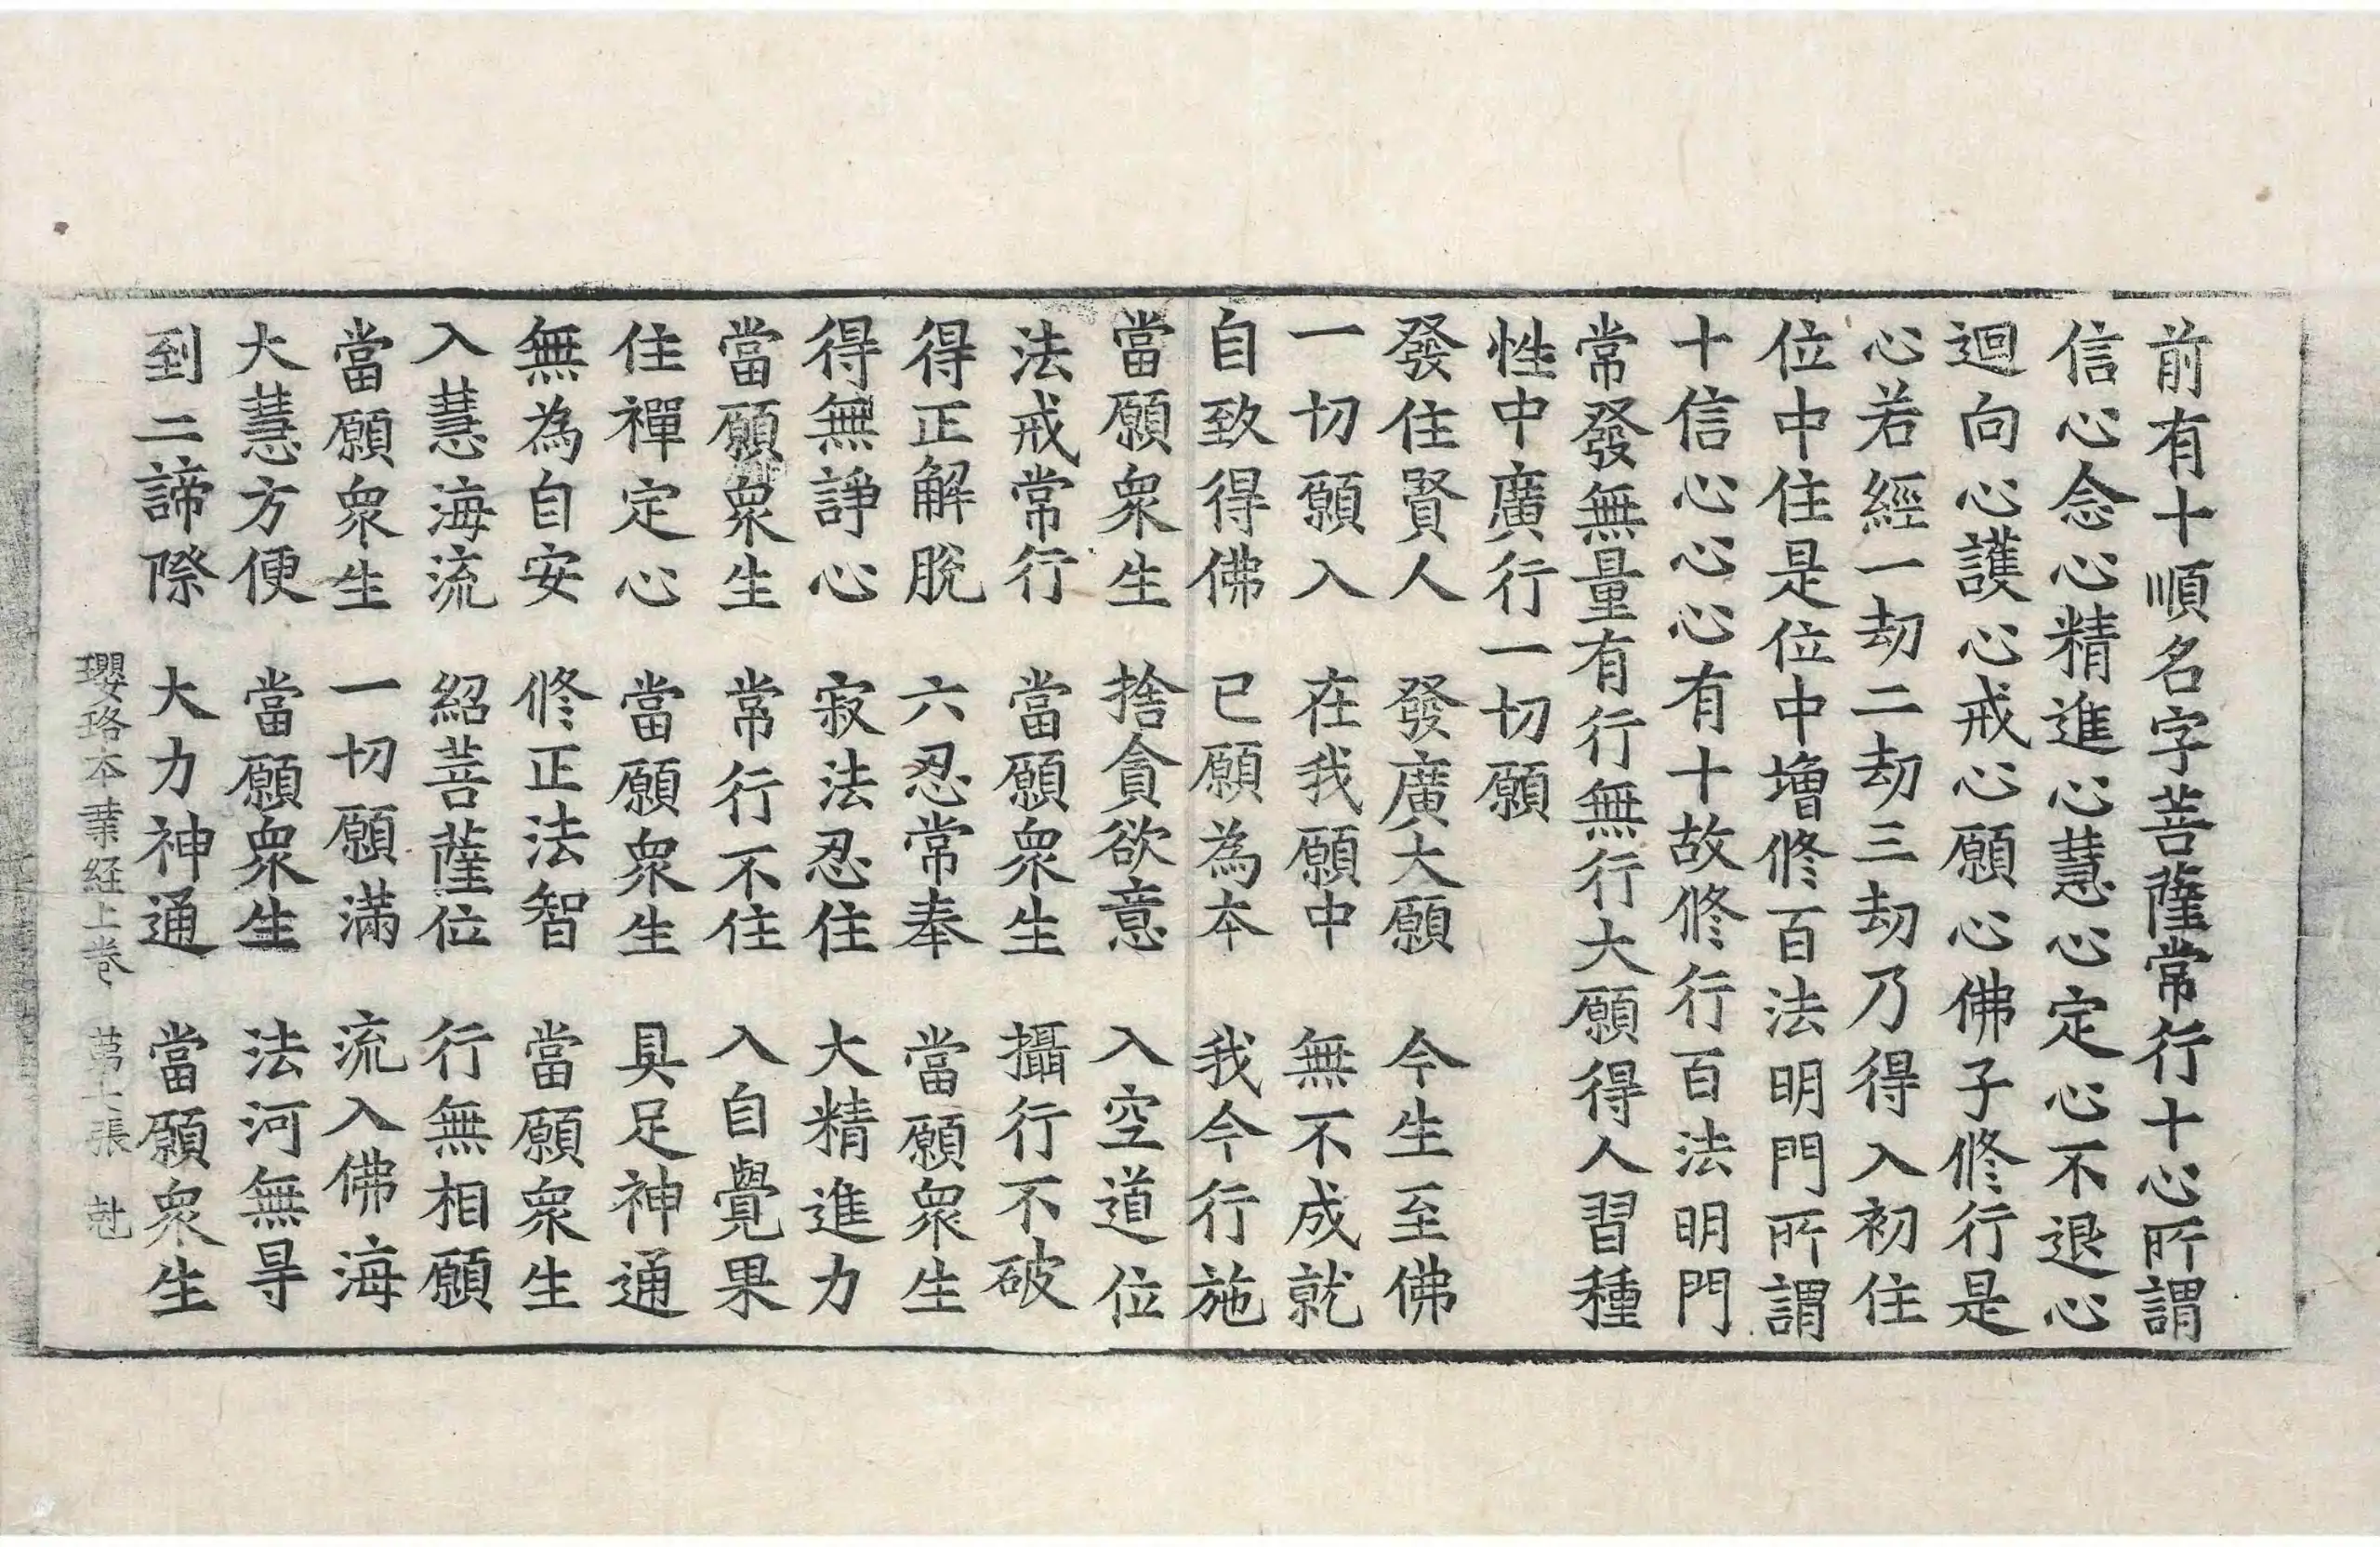 前有十順名字菩薩常行十心所謂
信心念心精進心慧心定心不退心
迴向心護心戒心願心佛子修行是
心若經一劫二劫三劫乃得入初住
位中住是位中增修百法明門所謂
十信心心心有十故修行百法明門
常發無量有行無行大願得人習種
性中廣行一切願
發住賢人　發廣大願　今生至佛
一切願入　在我願中　無不成就
自致得佛　已願為本　我今行施
當願衆生　捨貪欲意　入空道位
法戒常行　當願衆生　攝行不破
得正解脫　六忍常奉　當願衆生
得無諍心　寂法忍住　大精進力
當願衆生　常行不住　入自覺果
住禪定心　當願衆生　具足神通
無為自安　修正法智　當願衆生
入慧海流　紹菩薩位　行無相願
當願衆生　一切願滿　流入佛海
大慧方便　當願衆生　法河無㝵
到二諦際　大力神通　當願衆生
瓔珞本業経上卷　第七張